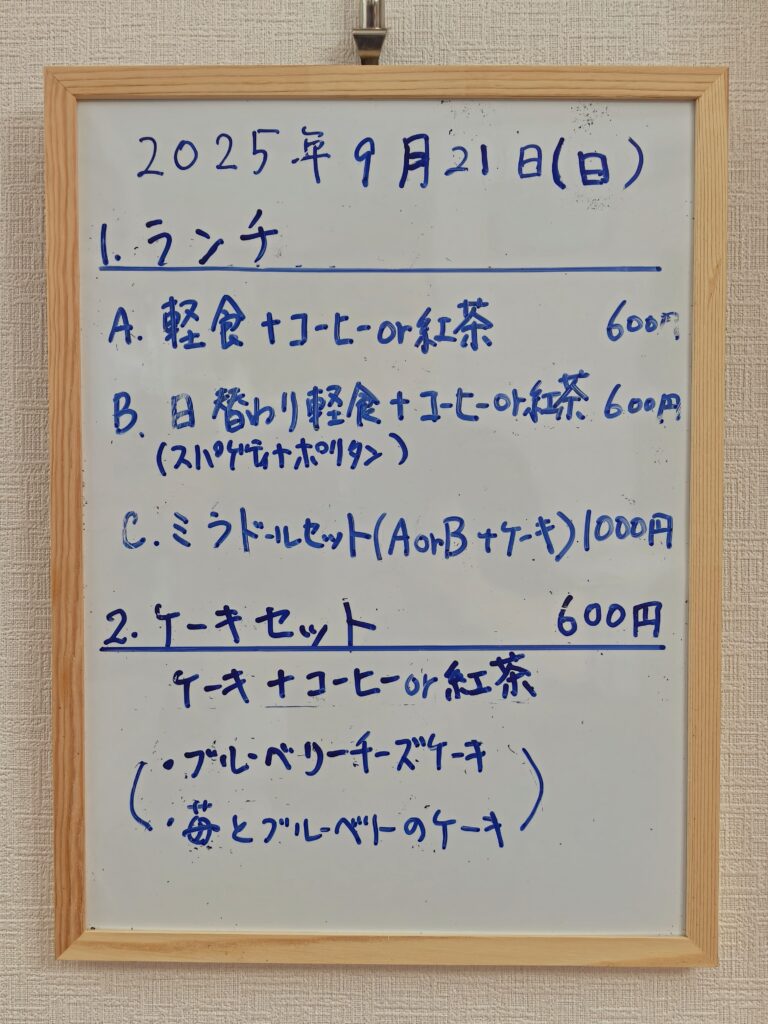 2025年9月21日(日)
1. ランチ
A. 軽食+コーヒーor紅茶 600円
B. 日替わり軽食+コーヒーor紅茶 600円
(スパゲティナポリタン)
C. ミラドールセット(AorB+ケーキ) 1000円
2. ケーキセット 600円
ケーキ+コーヒーor紅茶
・ブルーベリーチーズケーキ
・苺とブルーベリーのケーキ